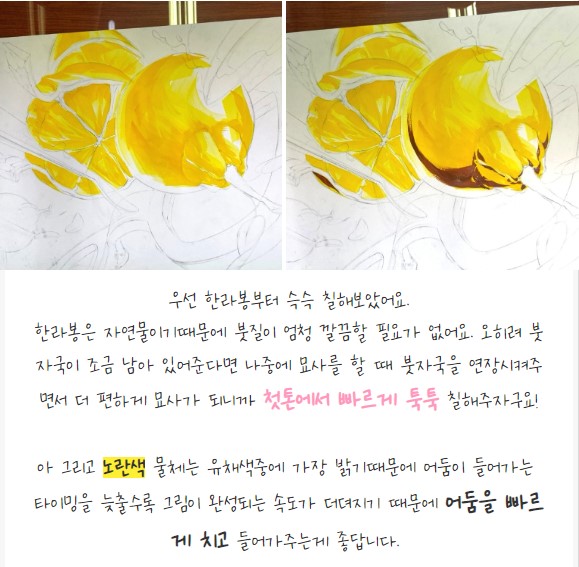 우선 한라봉부터 슥슥 칠해보았어요.
한라봉은 자연물이기때문에 붓질이 엄청 깔끔할 필요가 없어요. 오히려 붓
자국이 조금 남아 있어준다면 나중에 묘사를 할 때 붓자국을 연장시켜주
면서 더 편하게 묘사가 되니까 첫톤에서 빠르게 툭툭 칠해주자구요!
아 그리고 노란색 물체는 유채색중에 가장 밝기때문에 어둠이 들어가는
타이밍을 늦출수록 그림이 완성되는 속도가 더뎌지기 때문에 어둠을 빠르
게 치고 들어가주는게 좋답니다.